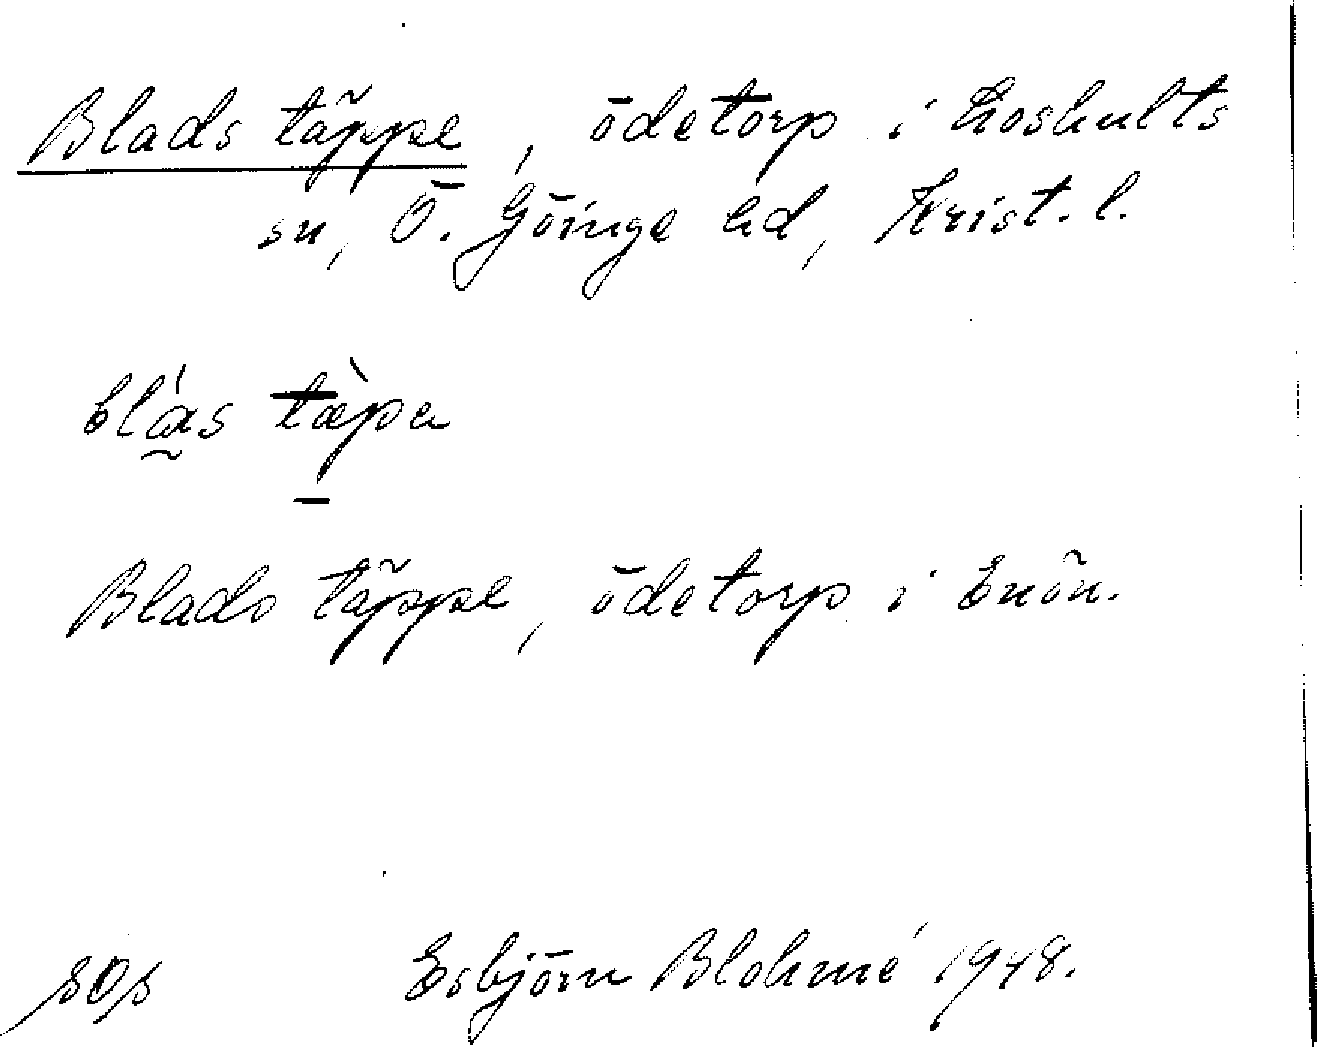 Blads täppe, ödetorp i Loshults
sn, Ö. Göinge hd, Krist. l.
blás tæ̀pa
Blads täppe, ödetorp i Enön.
Esbjörn Blohmé 1948.